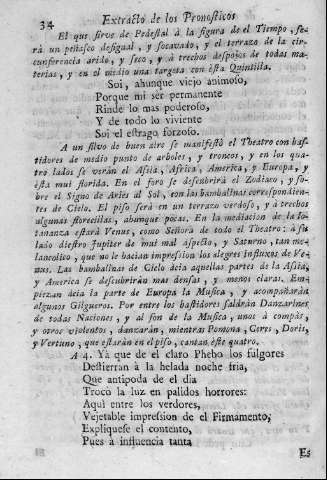 34 Extracto de los Pronosticos
El que sirve de Pedestal à la figura de el Tiempo, se-
rà un peñasco desigual, y socavado, y el terrazo de la cir-
cunferencia arido, y seco, y à trechos despojos de todas ma-
terias, y en el medio una targeta con èsta Quintilla.
Soi, ahunque viejo animoso,
Porque mi sèr permanente
Rinde lo mas poderoso,
Y de todo lo viviente
Soi el estrago forzoso.
A un silvo de buen aire se manifestò el Theatro con bas-
tidores de medio punto de arboles, y troncos, y en los qua-
tro lados se veràn el Assia, Africa, America, y Europa, y
èsta mui florida. En el foro se descubrirà el Zodiaco, y so-
bre el Signo de Aries al Sol, con las bambalinas correspondien-
tes de Cielo. El piso serà en un terrazo verdoso, y à trechos
algunas florecillas, ahunque pocas. En la mediacion de la lon-
tananza estarà Venus, como Señora de todo el Theatro: à su
lado diestro Jupiter de mui mal aspecto, y Saturno, tan me-
lancolico, que no le hacian impression los alegres influxos de Ve-
nus. Las bambalinas de Cielo àcia aquellas partes de la Assia,
y America se descubriràn mas densas, y menos claras. Em-
piezan àcia la parte de Europa la Musica, y acompañaràn
algunos Gilgueros. Por entre los bastidores saldràn Danzarines
de todas Naciones, y al son de la Musica, unos à compàs,
y otros violentos, danzaràn, mientras Pomona, Ceres, Doris,
y Vertuno, que estaràn en el piso, cantan èste quatro.
A 4. Yà que de el claro Phebo los fulgores
Destierran à la helada noche fria,
Que antipoda de el dia
Trocò la luz en palidos horrores:
Aqui entre los verdores,
Vejetable impression de el Firmamento,
Expliquese el contento,
Pues à influencia tanta
Es